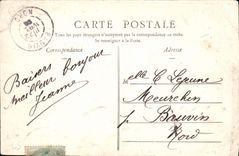 CARTE POSTALE
Tous les pays étrangers n'acceptent pas la correspondance au recto.
Se renseigner à la Poste.
Correspondance
Adresse
LYON
Baisers
meilleur bonjour
Jeanne
Melle C. Lejeune
Meurchin
p. Bauvin
Nord